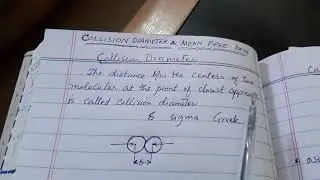 COLLISION DIAMETER & MEAN FREE PATH
Collision Diameter
The distance b/w the centers of two
molecules at the point of closest approach
is called collision diameter
sigma (Greek